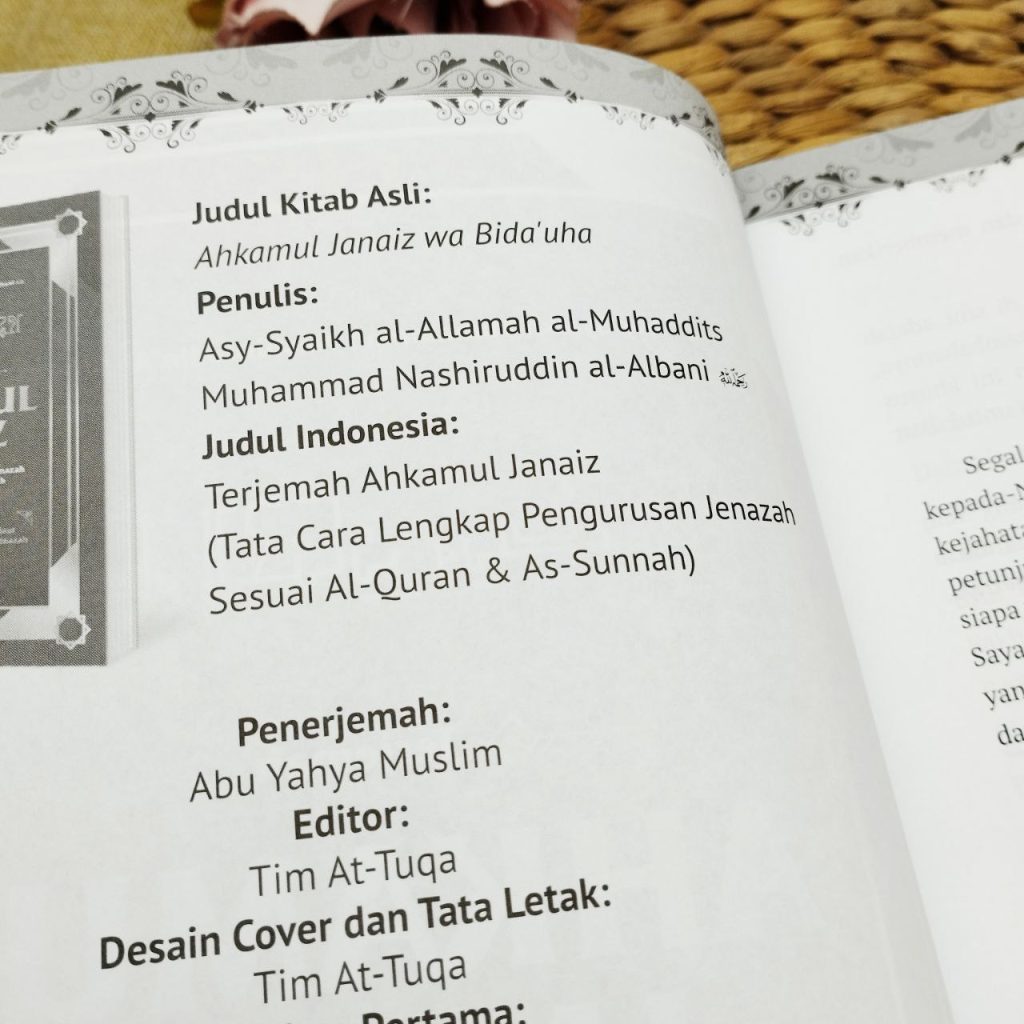 Judul Kitab Asli:
Ahkamul Janaiz wa Bida'uha
Penulis:
Asy-Syaikh al-Allamah al-Muhaddits
Muhammad Nashiruddin al-Albani
Judul Indonesia:
Terjemah Ahkamul Janaiz
(Tata Cara Lengkap Pengurusan Jenazah
Sesuai Al-Quran & As-Sunnah)
Penerjemah:
Abu Yahya Muslim
Editor:
Tim At-Tuqa
Desain Cover dan Tata Letak:
Tim At-Tuqa
Pertama:
Segal
kepada-N
kejahata
petunj
siapa
Saya
yan
da